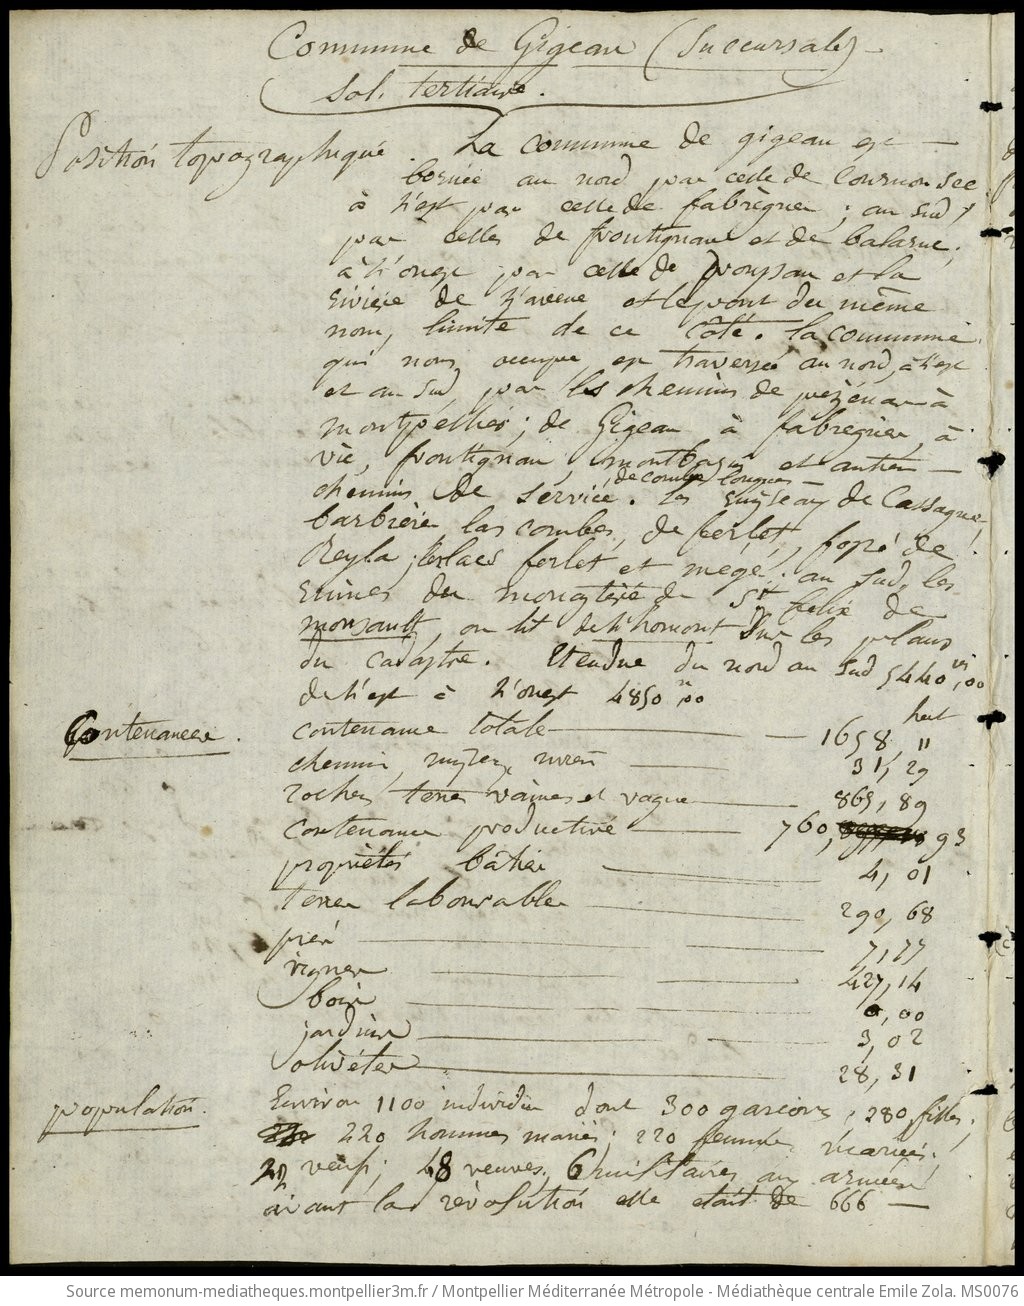 Commune de Gigean (Succursale)
Sol tertiaire.
Position topographique. La commune de gigean est
bornée au nord par celle de Cournonsec
à l'est par celle de fabrègues ; au sud
par celles de frontignan et de balaruc,
à l'ouest par celle de poussan et la
rivière de l'avene et le pont du même
nom, limite de ce côté. la commune
qui nous occupe est traversée au nord, à l'est
et au sud, par les chemins de pézénas à
montpellier ; de Gigean à fabregues, à
vic, frontignan, montbasin et autres
chemins de service. Les ruisseaux de combes longues de Cassagne,
barbière las combes, de ferlet, fossé de
Reyla ; ferlet et mège ; au sud, les
ruines du monastère de St felix de
monsault, on lit de l'homont sur les plans
du cadastre. Etendue du nord au sud 5440,00
de l'est à l'ouest 4850 m,00
hect
Contenances. contenance totale 1658, "
chemins, 31, 29
rochers, terres vaines et vagues 865, 89
contenance productive 760, 93
propriétés bâties 4, 01
terres labourables 290, 68
prés 7,77
vignes 427,14
bois 0,00
jardins 3,02
olivètes 28,31
population. Environ 1100 individus dont 300 garçons ; 280 filles ;
220 hommes mariés ; 220 femmes mariées ;
veufs ; 48 veuves, 6 militaires aux armées
avant la révolution elle etait de 666
Source memonum-mediatheques.montpellier3m.fr / Montpellier Méditerranée Métropole - Médiathèque centrale Emile Zola. MS0076